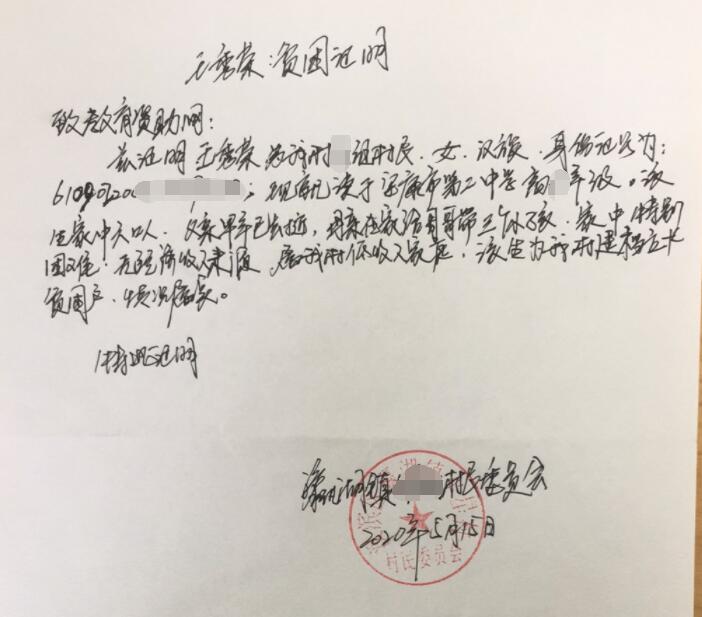 王秀荣:贫困证明
致教育资助网:
兹证明王秀荣为我村 组村民、女、汉族、身份证号为:
6109 200 ,现就读于安康市第二中学高 年级。该
生家中六口人、父亲早年已去世,母亲在家给哥哥带三个小孩、家中特别
困难、无经济收入来源,属我村低收入家庭,该生为我村建档立卡
贫困户、情况属实。
特此证明
瀛湖镇 村民委员会
2020年5月15日
瀛湖镇
村民委员会